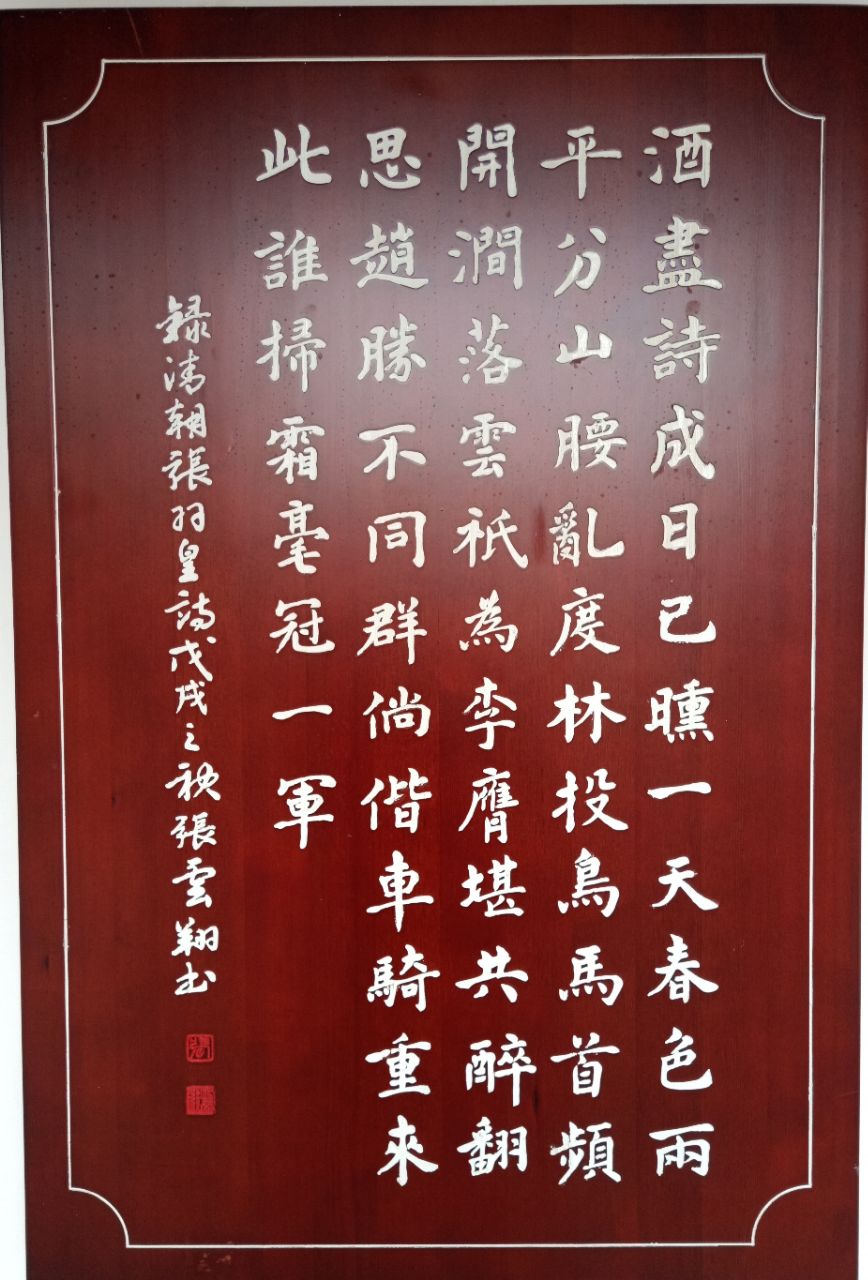 酒盡詩成日已曛一天春色兩
平分山腰亂度林投鳥馬首頻
開澗落雲祇為李膺堪共醉翻
思趙勝不同群倘偕車騎重來
此誰掃霜毫冠一軍
録清朝張羽皇詩戊戌之秋張雲翔書